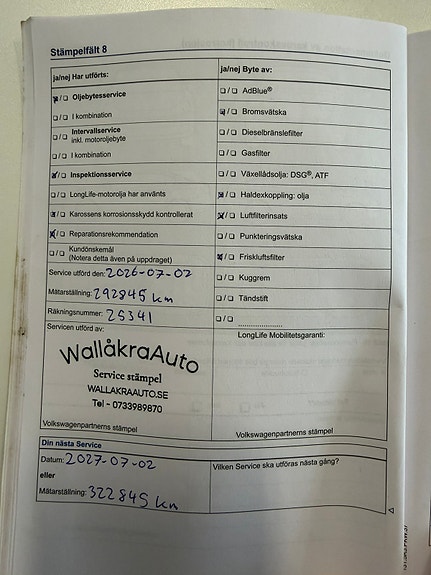 Stämpelfält 8
ja/nej Har utförts:
☒/☐ Oljebytesservice
☐/☐ I kombination
☐/☐ Intervallservice
inkl. motoroljebyte
☐/☐ I kombination
☒/☐ Inspektionsservice
☐/☐ LongLife-motorolja har använts
☒/☐ Karossens korrosionsskydd kontrollerat
☒/☐ Reparationsrekommendation
☐/☐ Kundönskemål
(Notera detta även på uppdraget)
Service utförd den: 2026-07-02
Mätarställning: 292845 km
Räkningsnummer: 25341
Servicen utförd av:
WallåkraAuto
Service stämpel
WALLAKRAAUTO.SE
Tel - 0733989870
Volkswagenpartnerns stämpel
ja/nej Byte av:
☐/☐ AdBlue®
☒/☐ Bromsvätska
☐/☐ Dieselbränslefilter
☐/☐ Gasfilter
☐/☐ Växellådsolja: DSG®, ATF
☒/☐ Haldexkoppling: olja
☒/☐ Luftfilterinsats
☐/☐ Punkteringsvätska
☒/☐ Friskluftsfilter
☐/☐ Kuggrem
☐/☐ Tändstift
☐/☐ ....................
LongLife Mobilitetsgaranti:
Volkswagenpartnerns stämpel
Din nästa Service
Datum: 2027-07-02
eller
Mätarställning: 322845 km
Vilken Service ska utföras nästa gång?